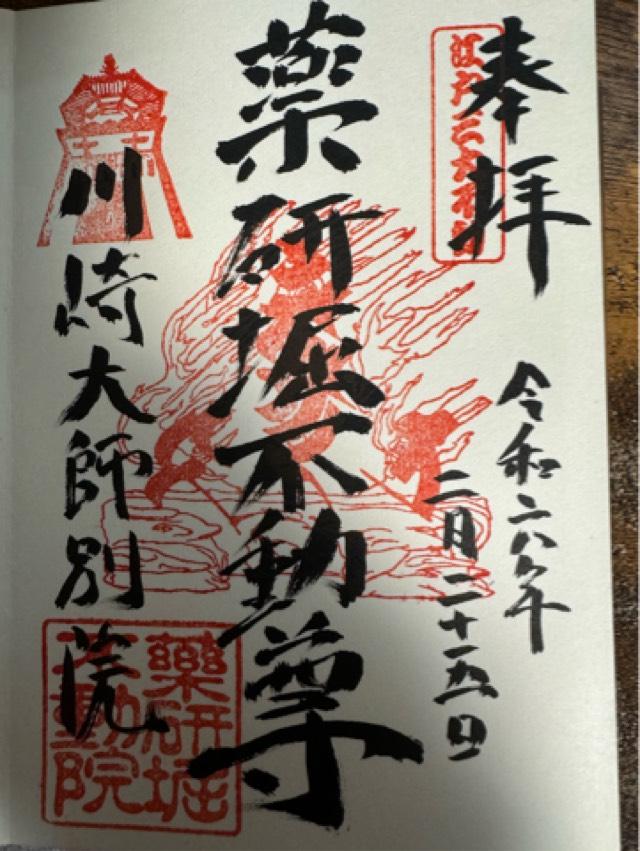 奉拝
令和六年
二月二十五日
薬研堀不動尊
川崎大師別院
薬研堀
不動院